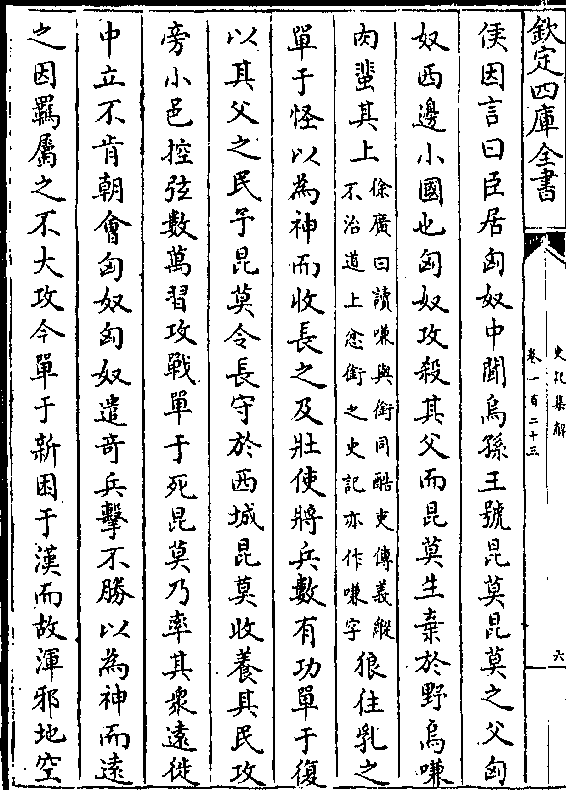 欽定四庫全書
史記集解
卷一百二十三
六
侯因言曰臣居匈奴中聞烏孫王號昆莫昆莫之父匈
奴西邊小國也匈奴攻殺其父而昆莫生棄於野烏嗛
肉蜚其上
徐廣曰讀嗛與銜同酷吏傳義縱
不治道上忿銜之史記亦作嗛字
狼往乳之
單于怪以為神而收長之及壯使將兵數有功單于復
以其父之民予昆莫令長守於西城昆莫收養其民攻
旁小邑控弦數萬習攻戰單于死昆莫乃率其衆遠徙
中立不肯朝會匈奴匈奴遣奇兵擊不勝以為神而遠
之因羈屬之不大攻今單于新困于漢而故渾邪地空